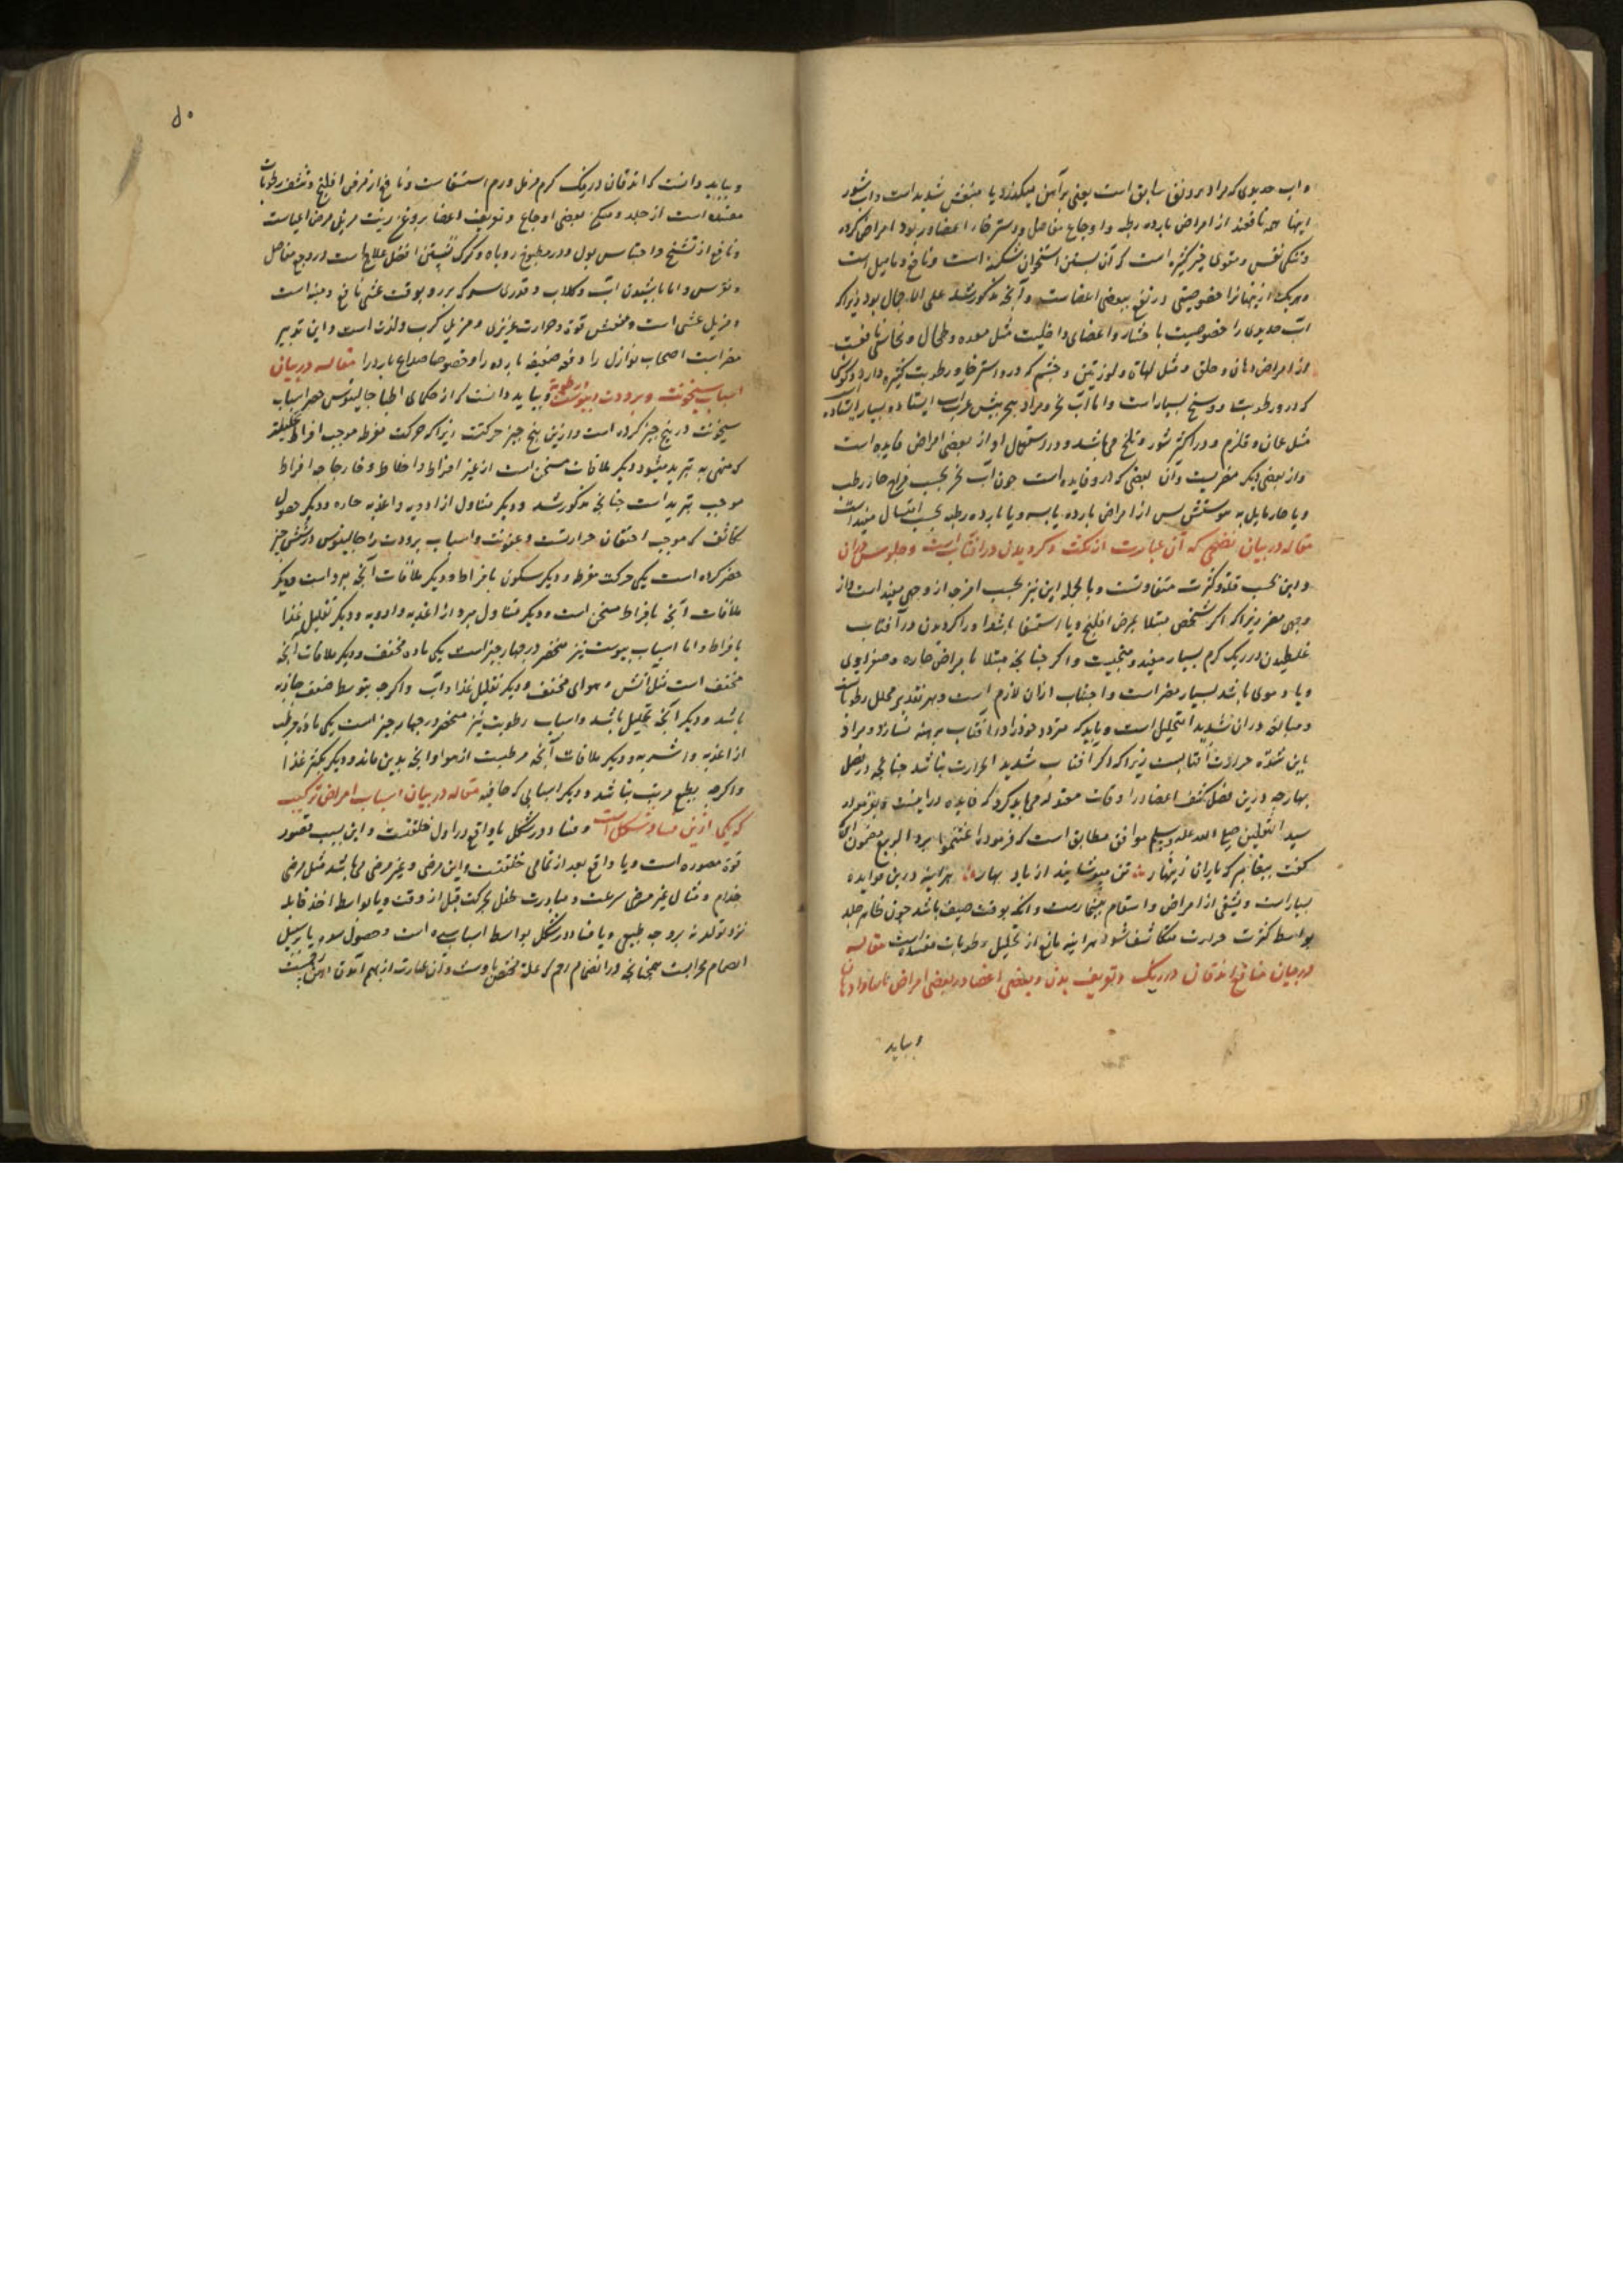 و اب حدیدی که مراد بر وفق سابق است یعنی بر آهن میکذرد یا شدید است و اب شور
اینها همه نافعند از امراض بارده رطبه و اوجاع مفاصل و در استرخاء اعضا و ربو و امراض کرده
و تنکی نفس و مقوی است که آن بستن استخوان شکسته است و نافع دمامیل است
و هر یک از اینها را خصوصیتی در نفع ببعضی اعضاست و آنچه مذکور شد علی الاجمال بود زیرا که
آب حدیدی را خصوصیت با و اعضای داخلیت مثل معده و طحال و
از امراض دهان و حلق و مثل لهاة و لوزتین و چشم که در و استرخا و رطوبت کثیره دارد و کوش
که در و رطوبت و وسخ بسیار است و اما آب بحر و مراد ایستاده بسیار ایستاده
مثل عمان و قلزم و در اکثر شور و تلخ می باشد و در استعمال او از بعضی امراض فایده است
و از بعضی دیکر مضریست و آن بعضی که در و فایده است چون آب بحر بحسب مزاج حار رطب
و یا حار مایل به پس از امراض بارده یابسه و یا بارده رطبه بحسب مفید است
مقاله در بیان که آن عبارت از مکث و کردیدن در آفتاب است و جلوس در ان
و این بحسب قلة و کثرت متفاوتست و بالجمله این نیز بحسب امزجه از وجهی مفید است و از
وجهی مضر زیرا که اکر شخصی مبتلا بمرض افلیج و یا استسقا باشد او را کردیدن در آفتاب
غلطیدن در ریک کرم بسیار مفید و منجیست و اکر چنانچه مبتلا بامراض حاره و صفراوی
و یا دموی باشد بسیار مضر است و اجتناب ازان لازم است و بهر تقدیر محلل رطوبات
و مبالغه دران شدید التحلیل است و باید که متردد خود را در آفتاب برهنه نسازد و مراد
باین شدة حرارت آفتابست زیرا که اکر آفتاب شدید الحرارت نباشد چنانچه در فصل
بهار چه درین فصل کشف اعضا در اوقات معتدله می باید کرد که فایده در اینست و بفرموده
سید الثقلین صلی الله علیه و سلم موافق و مطابق است که فرموده اغتنموا برد الربیع مضمون آنکه
کفت پیغامبر که یاران زینهار تن مپوشانید از باد بهار هر آینه درین فوایده
بسیار است و یشفی از امراض و اسقام بیشمارست و انکه بوقت صیف باشد چون ظاهر جلد
بواسطه کثرت حرارت متکاثف شود هر آینه مانع از تحلیل رطوبات مفسده است مقاله
در بیان منافع اندفان در ریک و بدن و بعضی اعضا در بعضی امراض
و بباید
۵۰
و بباید دانست که اندفان در ریک کرم مزیل ورم استسقاست و نافع از مرض افلیج و منشف رطوبات
مفسده است از جلد و مسکن بعضی اوجاع و اعضا بروغن زیت مزیل مرض اعیاست
و نافع از تشنج و احتباس بول و در مطبوخ روباه و کرک نشستن افضل علاجهاست در وجع مفاصل
و نقرس و اما پاشیدن آب و کلاب و قدری سرکه بر رو بوقت غشی نافع و مفید است
و مزیل غشی است و منعش قوة و حرارت غریزی و مزیل کرب و لذع است و این تدبیر
مضر است اصحاب نوازل را و معده ضعیفه بارده را و خصوصا صداع بارد را مقاله در بیان
اسباب سخونت و برودت و یبوست و رطوبة و بباید دانست که از حکمای اطبا جالینوس حصر اسباب
سخونت در پنج چیز کرده است و از این پنج چیز حرکتت زیرا که حرکت مفرط موجب افراط
که منهی به تبرید میشود و دیکر ملاقات مسخن است از غیر افراط و اختلاط و خارجا چه افراط
موجب تبرید است چنانچه مذکور شد و دیکر متناول از ادویه و اغذیه حاره و دیکر حصول
تکاثف که موجب احتقان حرارتست و عفونت و اسباب برودت را جالینوس در شش چیز
حصر کرده است یکی حرکت مفرط و دیکر سکون بافراط و دیکر ملاقات آنچه مبرد است و دیکر
ملاقات آنچه بافراط مسخن است و دیکر متناول مبرد از اغذیه و ادویه و دیکر تقلیل غذا
بافراط و اما اسباب یبوست نیز منحصر در چهار چیز است یکی ماده مجفف و دیکر ملاقات آنچه
مجفف است مثل آتش و هوای مجفف و دیکر تقلیل غذا و آب و اکرچه بتوسط ضعف جاذبه
باشد و دیکر آنچه تحلیل باشد و اسباب رطوبت نیز منحصر در چهار چیز است یکی ماده مرطب
از اغذیه و اشربه و دیکر ملاقات آنچه مرطبست از هوا و آنچه بدین ماند و دیکر تکثیر غذا
و اکرچه بطبع مرطب نباشد و دیکر اسبابی که مقاله در بیان اسباب امراض ترکیب
که یکی ازین فساد شکل است و فساد در شکل یا واقع در اول خلقتست و این بسبب قصور
قوة مصوره است و یا واقع بعد از تمامی خلقتست و این مرضی و غیر مرضی می باشد مثل مرض
جذام و مثال غیر مرضی سرعت و مبادرت طفل بحرکت قبل از وقت و یا بواسطه اخذ قابله
نزد تولد نه بر وجه طبیعی و یا فساد در شکل بواسطه اسباب سده است و حصول سده یا بر سبیل
انضمام مجراست همچنانچه در انضمام رحم که علة مختص باوست و آن عبارت از بهم آمدن